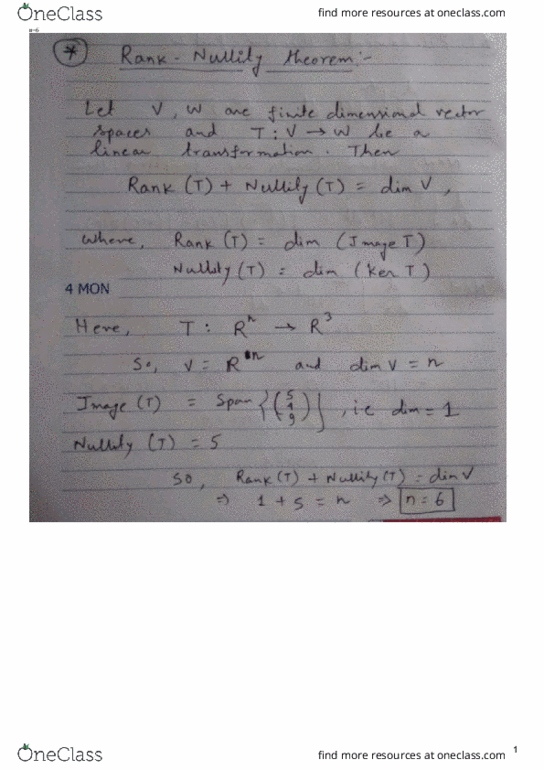 OneClass
find more resources at oneclass.com
n=6
* Rank - Nullity theorem :-
Let V, W are finite dimensional vector
spaces and T : V → W be a
linear transformation. Then
Rank (T) + Nullity (T) = dim V,
where, Rank (T) = dim (Image T)
Nullity (T) = dim (Ker T)
4 MON
Here, T : R^n → R^3
So, V = R^n and dim V = n
Image (T) = Span {(5 1 9)}, i.e dim = 1
Nullity (T) = 5
So, Rank(T) + Nullity(T) = dim V
⇒ 1 + 5 = n ⇒ n = 6
OneClass
find more resources at oneclass.com
1